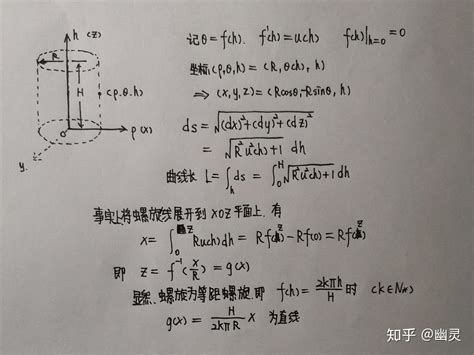 h (z)
R
H
(ρ,θ,h)
O
ρ(x)
y
记θ=f(h). f'(h)=u(h) f(h)|h=0 =0
坐标(ρ,θ,h)=(R,θ(h),h)
⇒(x,y,z)=(Rcosθ,-Rsinθ,h)
ds=√((dx)²+(dy)²+(dz)²)
=√(R²u²(h)+1) dh
曲线长 L=∫h ds=∫₀ᴴ√(R²u²(h)+1) dh
事实上将螺旋线展开到XOZ平面上,有
x=∫₀ᶻ Ru(h)dh=Rf(z)-Rf(0)=Rf(z)
即 z=f⁻¹(x/R)=g(x)
显然,螺旋为等距螺旋,即 f(h)=2kπh/H 时 (k∈N*)
g(x)=H/(2kπR) x 为直线
知乎 @幽灵